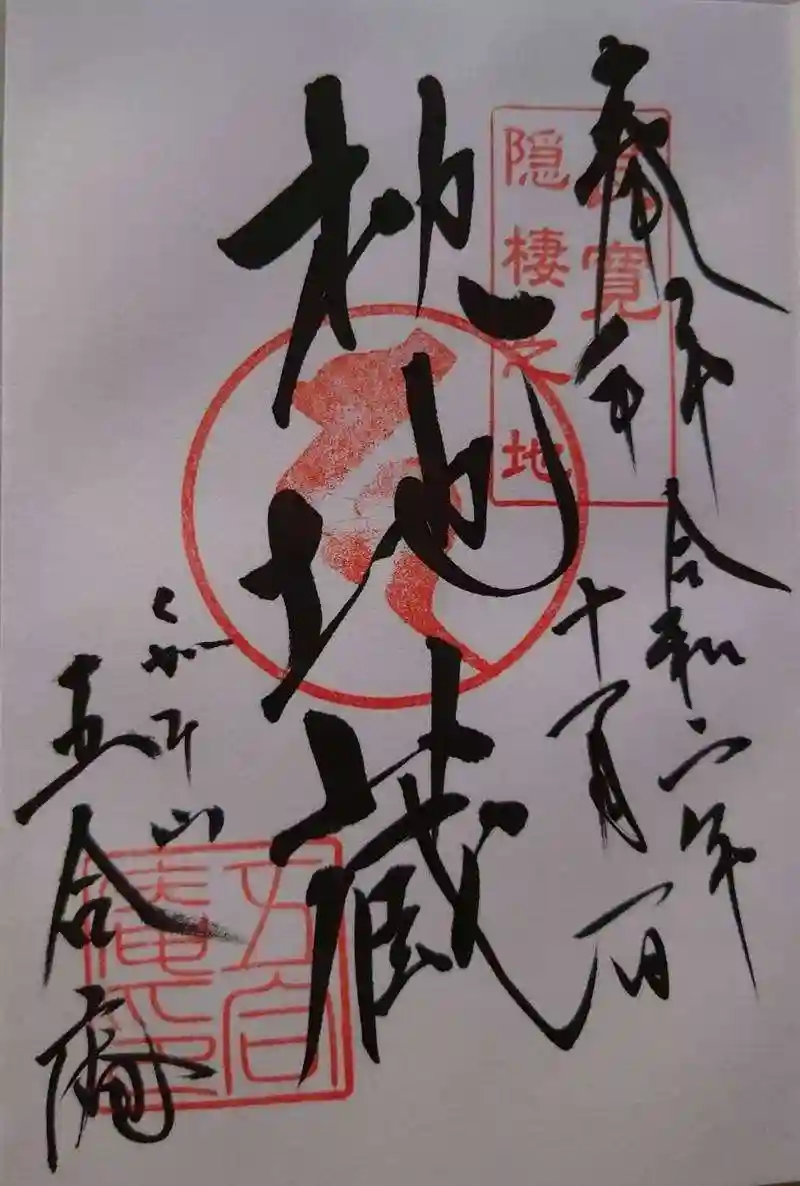 良寛
隠棲之地
令和六年
十一月一日
地蔵
くがみ山
五合庵
五合
庵印